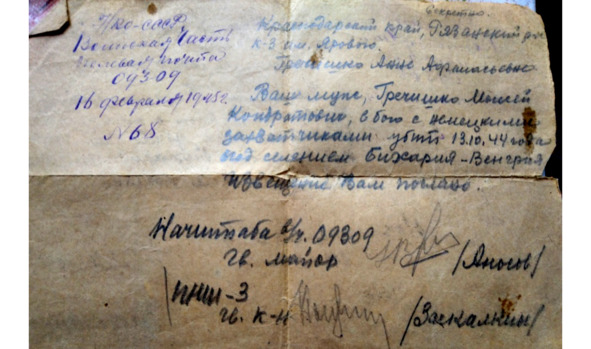 НКО-СССР
Воинская Часть
Полевая почта
09309
16 февраля 1945г.
№ 68
Секретно.
Краснодарский край, Рязанский р-н
к-з им. Ярового.
Гречишко Анне Афанасьевне
Ваш муж, Гречишко Моисей
Кондратович, в бою с немецкими
захватчиками убит 13.10.44 года
под селением Бихария-Венгрия
Извещение Вам послано.
Начштаба в/ч. 09309
гв. майор /Аносов/
/ПНШ-3
гв. к-н /Заскалкин/